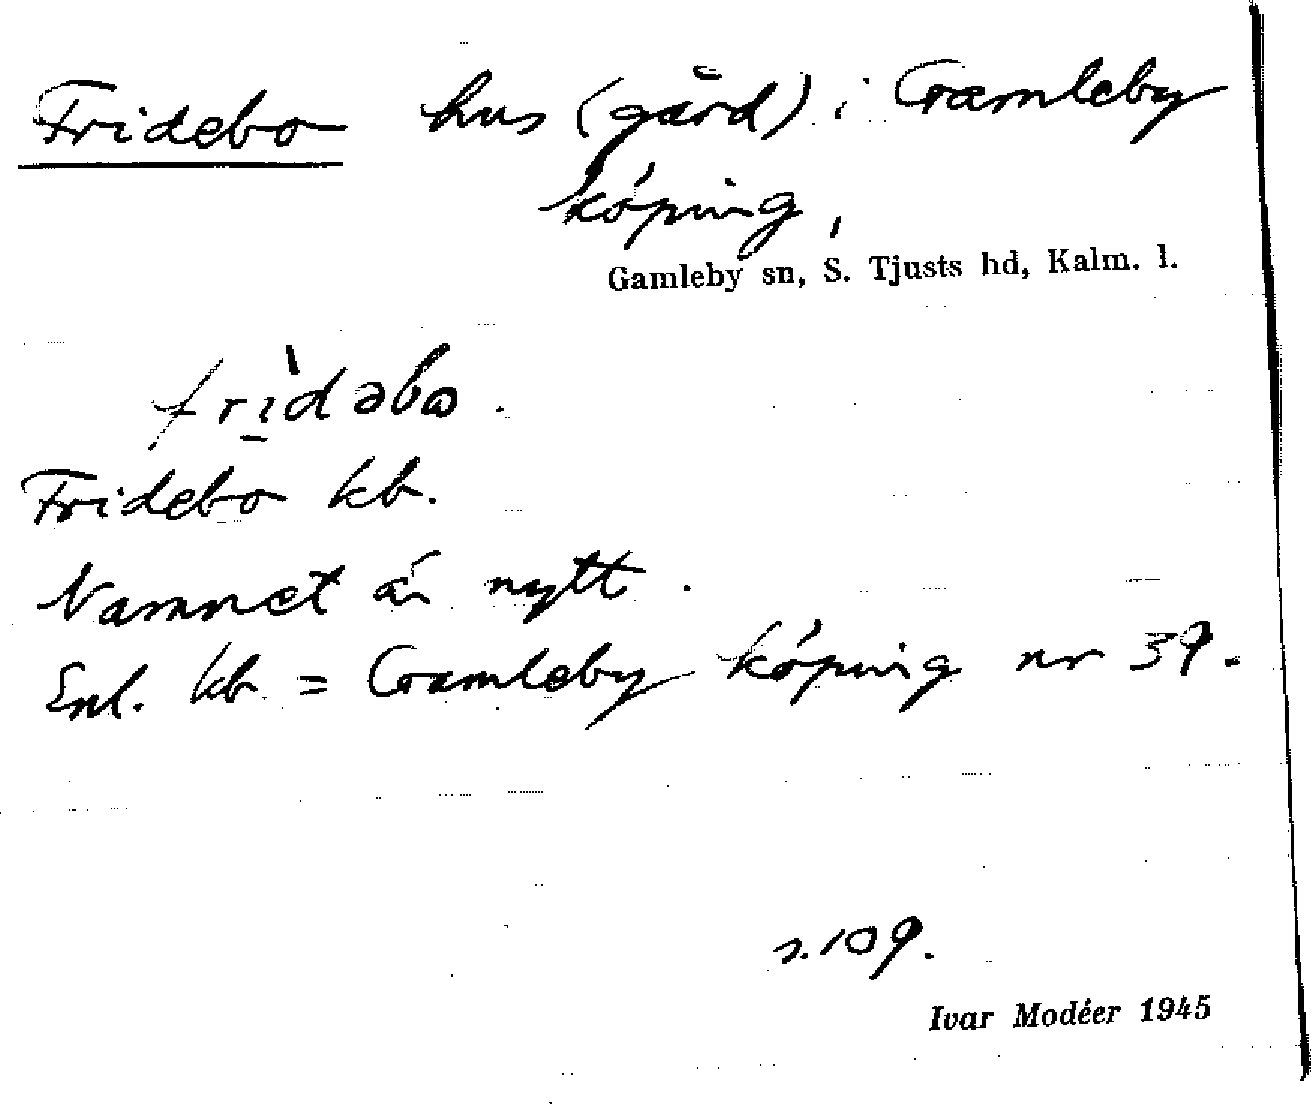 Fridebo hus (gård) i Gamleby
köping,
Gamleby sn, S. Tjusts hd, Kalm. l.
frì̱dəbω.
Fridebo kb.
Namnet är nytt.
Enl. kb = Gamleby köping nr 39.
s. 109.
Ivar Modéer 1945